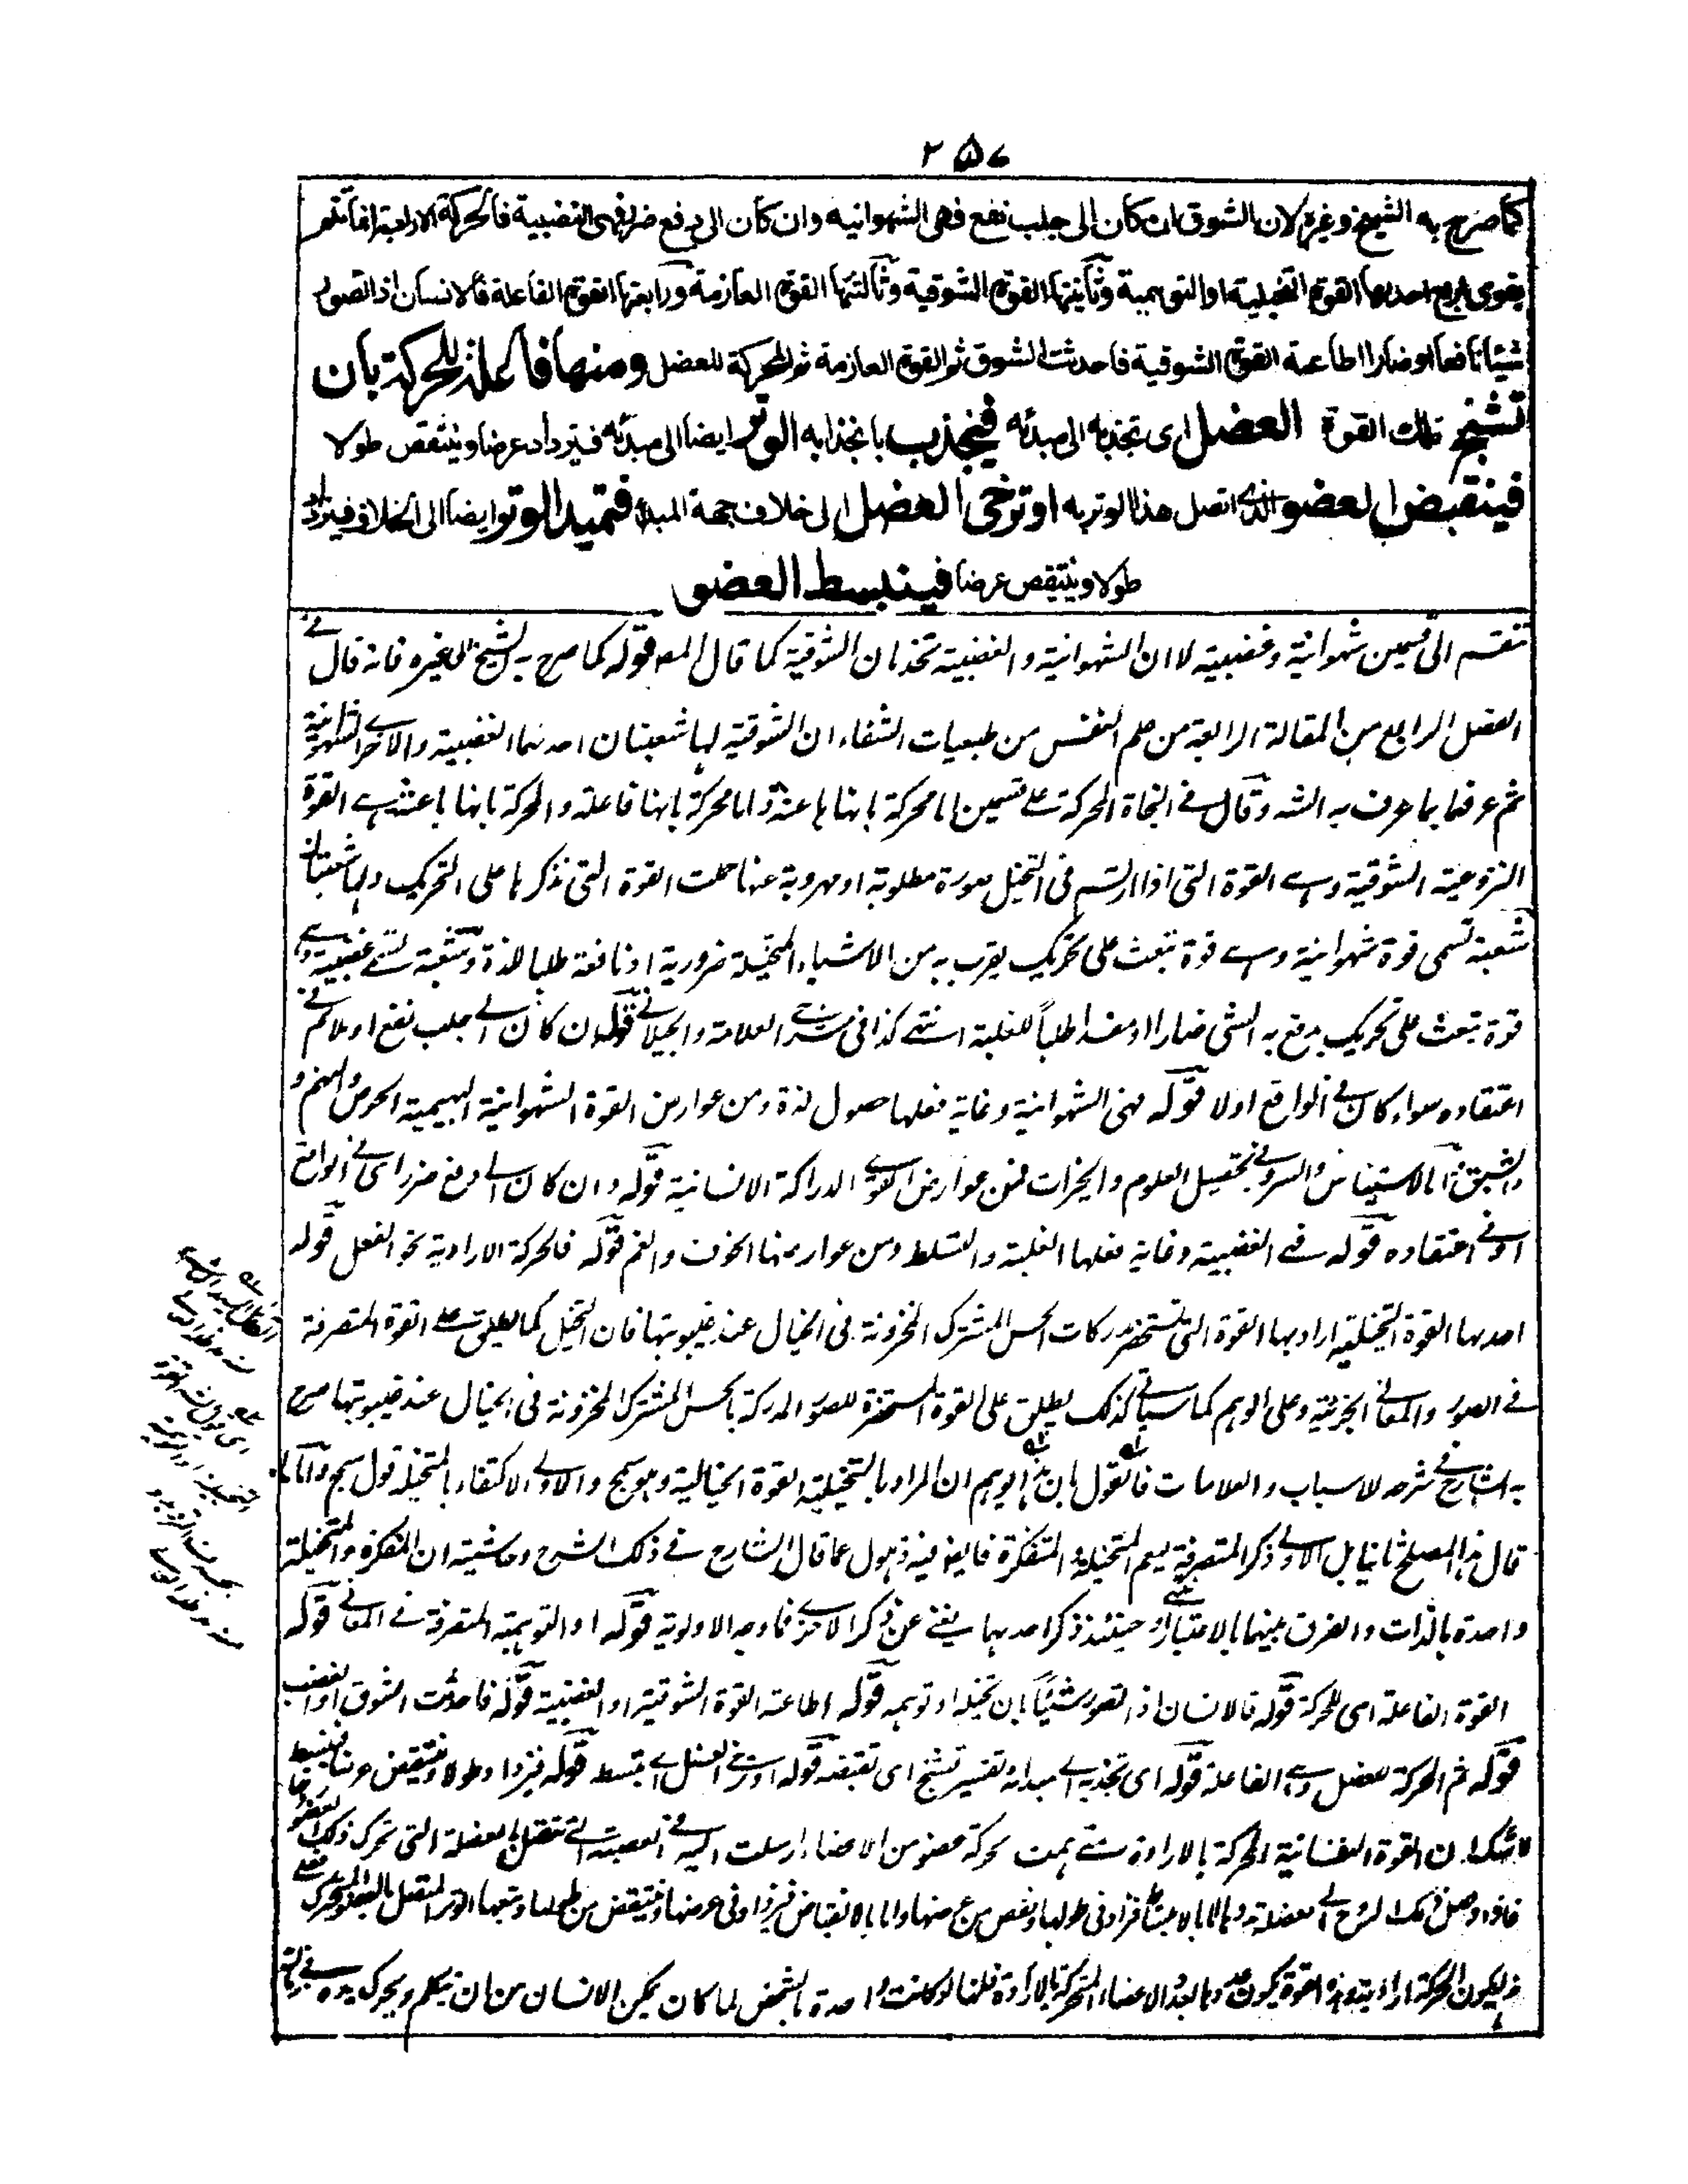 ٢٥٧
كما صرح به الشيخ وغيره لان الشوق ان كان الى جلب نفع فهى الشهوانيه وان كان الى دفع ضر فهى الغضبية فالحركة الارادية انما تتم
بقوى اربع احدها القوة التخيلية او التوهمية وثانيتها القوة الشوقية وثالثتها القوة العازمة ورابعتها القوة الفاعلة فالانسان اذا تصور
شيئا نافعا او ضارا اطاعته القوة الشوقية فاحدثت الشوق ثم القوة العازمة ثم المحركة للعضل ومنها فاعلة للحركة بان
تشنج تلك القوة العضل اى تجذبه الى مبدئه فيجذب بانجذابه الوتر ايضا الى مبدئه فيزداد عرضا وينتقص طولا
فينقبض العضو الذى اتصل هذا الوتر به او ترخى العضل الى خلاف جهة المبدأ فتميد الوتر ايضا الى الخلاف فيزداد
طولا وينتقص عرضا فينبسط العضو
تنقسم الى قسمين شهوانية وغضبية لا ان الشهوانية والغضبية تخدمان الشوقية كما قال المصـ قوله كما صرح به الشيخ وغيره فانه قال فے
الفصل الرابع من المقالة الرابعة من علم النفس من طبعيات الشفاء ان الشوقية لها شعبتان احدهما الغضبية والاخرے الشهوانية
ثم عرفهما بما عرف به الشـ وقال فى النجاة المحركة على قسمين اما محركة بانها باعثة واما محركة بانها فاعلة والمحركة بانها باعثة هے القوة
النزوعية الشوقية وهے القوة التى اذا ارتسم فى التخيل صورة مطلوبة او مهروبة عنها حملت القوة التى نذكرها على التحريك ولها شعبتان
شعبة تسمى قوة شهوانية وهے قوة تبعث على تحريك يقرب به من الاشياء المتخيلة ضرورية او نافعة طلبا للذة وشعبة تسمے غضبية وهے
قوة تبعث على تحريك يدفع به الشى ضارا او مفسدا طلباً للغلبة انتهے كذا فى شرحے العلامة والجيلانے قوله ان كان الے جلب نفع او ملائم فے
اعتقاده سواء كان فے الواقع اولا قوله فهى الشهوانية وغاية فعلها حصول لذة ومن عوارض القوة الشهوانية البهيمية الحرص والنهم و
الشبق واما الاستيناس والسرور بتحصيل العلوم والخيرات فمن عوارض القوے الدراكة الانسانية قوله وان كان الے دفع ضر اى فے الواقع
او فے اعتقاده قوله فهے الغضبية وغاية فعلها الغلبة والتسلط ومن عوارضها الخوف والغم قوله فالحركة الارادية نحو الفعل قوله
احدها القوة التخيلية اراد بها القوة التى تستحضر مدركات الحس المشترك المخزونة فى الخيال عند غيبوبتها فان التخيل كما يطلق على القوة المتصرفة
فے الصور والمعانے الجزئية وعلى الوهم كما سياتے كذلك يطلق على القوة المستحضرة للصور المدركة بالحس المشترك المخزونة فى الخيال عند غيبوبتها صرح
به الشارح فے شرحه للاسباب والعلامات فالقول بان هذا يوهم ان المراد بالتخيلية القوة الخيالية وهو سمج والاولے الاكتفاء بالمتخيلة قول سمج واما ما
قال هذا المصلح ثانيا بل الاولے ذكر المتصرفة ليعم المتخيلة والمتفكرة ففيه ذهول عما قال الشارح فے ذلك الشرح وحاشيته ان المفكرة والمتخيلة
واحدة بالذات والفرق بينهما بالاعتبار و حينئذ ذكر احدهما يغنے عن ذكر الاخرے فما وجه الاولوية قوله او التوهمية المتصرفة فے المعانے قوله
القوة الفاعلة اى للحركة قوله فالانسان اذا تصور شيئاً بان تخيله او توهمه قوله اطاعته القوة الشوقية او الغضبية قوله فاحدثت الشوق او الغضب
قوله ثم المحركة للعضل وهے الفاعلة قوله اى تجذبه الے مبدئه تفسير تشنج اى تقبضه قوله او ترخے العضل اے تبسط قوله فيزداد طولا وينتقص عرضا فينبسط
لا شك ان القوة النفسانية المحركة بالارادة متے همت بحركة عضو من الاعضاء ارسلت اليه فے العصبة التے تتصل بالعضلة التى تحرك ذلك العضو